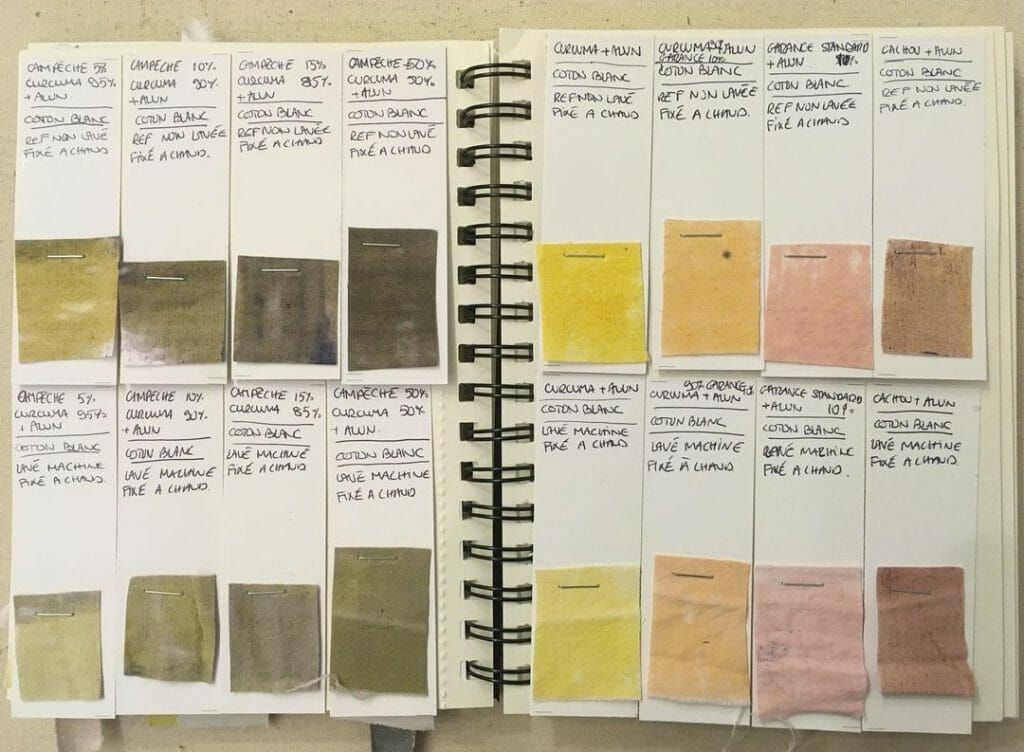 CAMPÈCHE 5%
CURCUMA 95%
+ ALUN
COTON BLANC
REF NON LAVÉ
FIXÉ A CHAUD
CAMPÈCHE 10%
CURCUMA 90%
+ ALUN
COTON BLANC
REF NON LAVÉE
FIXÉ A CHAUD.
CAMPÈCHE 15%
CURCUMA 85%
+ ALUN
COTON BLANC
REF NON LAVÉE
FIXÉ A CHAUD
CAMPÈCHE 50%
CURCUMA 50%
+ ALUN
COTON BLANC
REF NON LAVÉ
FIXÉ A CHAUD
CURCUMA + ALUN
COTON BLANC
REF NON LAVÉ
FIXÉ A CHAUD
CURCUMA + ALUN
GARANCE 10%
COTON BLANC
REF NON LAVÉE
FIXÉ A CHAUD.
GARANCE STANDARD
+ ALUN 10%
COTON BLANC
REF NON LAVÉE
FIXÉ A CHAUD
CACHOU + ALUN
COTON BLANC
REF NON LAVÉE
FIXÉ A CHAUD.
CAMPÈCHE 5%
CURCUMA 95%
+ ALUN
COTON BLANC
LAVÉ MACHINE
FIXÉ A CHAUD.
CAMPÈCHE 10%
CURCUMA 90%
+ ALUN
COTON BLANC
LAVÉ MACHINE
FIXÉ A CHAUD.
CAMPÈCHE 15%
CURCUMA 85%
COTON BLANC
LAVÉ MACHINE
FIXÉ A CHAUD.
CAMPÈCHE 50%
CURCUMA 50%
+ ALUN.
COTON BLANC
LAVÉ MACHINE
FIXÉ A CHAUD.
CURCUMA + ALUN
COTON BLANC
LAVÉ MACHINE
FIXÉ A CHAUD
GARANCE
CURCUMA + ALUN
COTON BLANC
LAVÉ MACHINE
FIXÉ A CHAUD
GARANCE STANDARD
+ ALUN 10%
COTON BLANC
MACHINE
FIXÉ A CHAUD.
CACHOU + ALUN
COTON BLANC
LAVÉ MACHINE
FIXÉ A CHAUD.